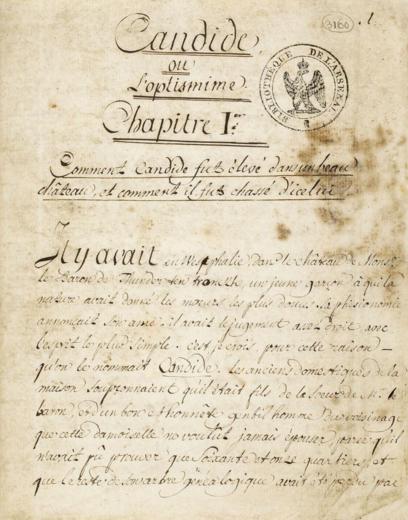 3160 .1.
Candide,
ou
L'optimisme.
Chapitre I.er
BIBLIOTHEQUE DE L'ARSENAL
Comment Candide fut élevé dans un beau
château, et comment il fut chassé d'icelui
Il y avait en Westphalie dans le château de Monsr.
le Baron de Thunder ten tronckh, un jeune garçon à qui la
nature avait donné les mœurs les plus douces. sa phisionomie
annonçait son ame. il avait le jugement assez droit, avec
l'esprit le plus simple. c'est je crois, pour cette raison —
qu'on le nommait Candide. les anciens domestiques de la
maison soupçonnaient qu'il était fils de la sœur de Mr. le
baron, et d'un bon et honnête gentilhomme du voisinage
que cette damoiselle ne voulut jamais épouser parce qu'il
n'avait pû prouver que soixante et onze quartiers, et
que le reste de son arbre généalogique avait été perdu par